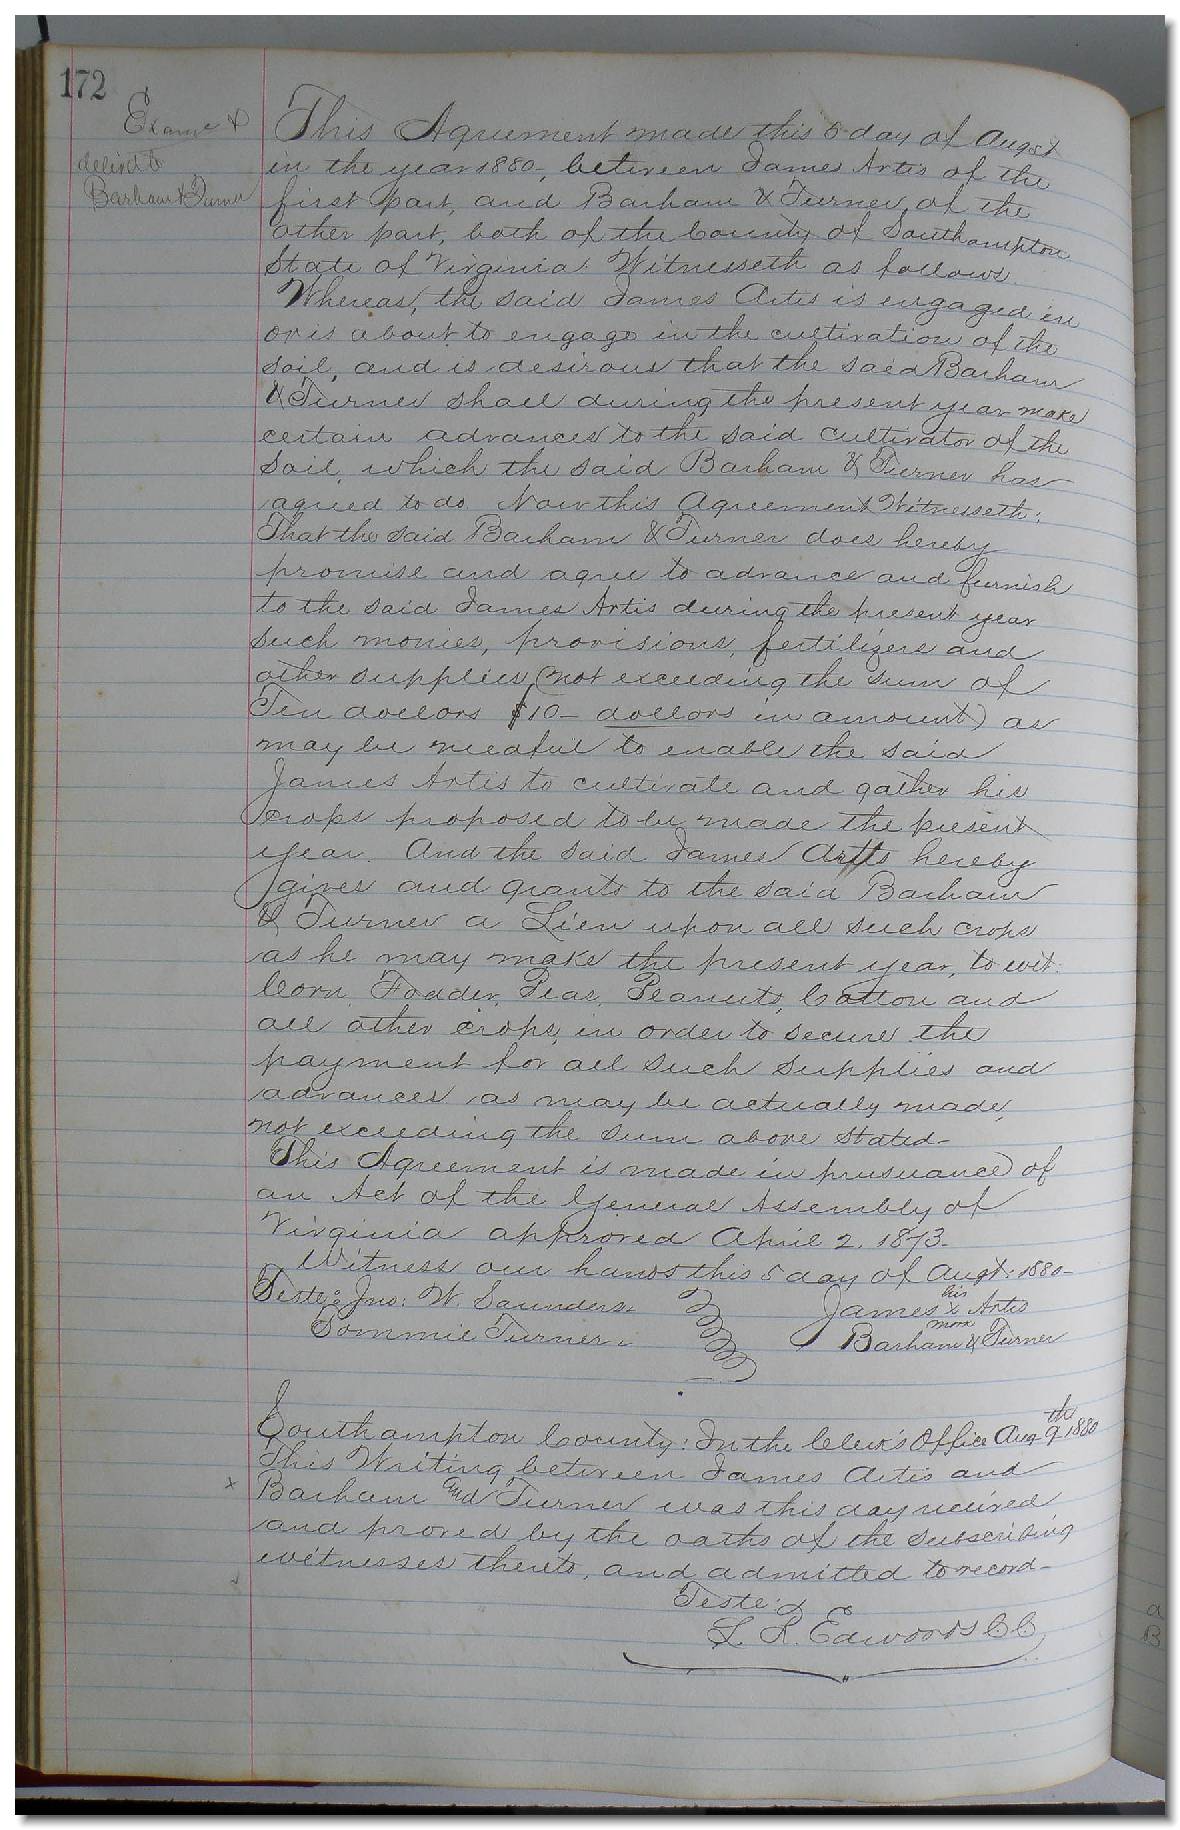 172
Exame &
delivd to
Barham & Turner
This Agreement made this 5 day of Augst
in the year 1880, between James Artis of the
first part, and Barham & Turner, of the
other part, both of the County of Southampton
State of Virginia: Witnesseth as follows.
Whereas, the said James Artis is engaged in
or is about to engage in the cultivation of the
soil, and is desirous that the said Barham
& Turner shall during the present year make
certain advances to the said cultivator of the
soil, which the said Barham & Turner has
agreed to do Now this Agreement Witnesseth:
That the said Barham & Turner does hereby
promise and agree to advance and furnish
to the said James Artis during the present year
such monies, provisions, fertilizers and
other supplies (not exceeding the sum of
Ten dollors $10– dollors in amount) as
may be needful to enable the said
James Artis to cultivate and gather his
crops proposed to be made the present
year. And the said James Artis hereby
gives and grants to the said Barham
& Turner a Lien upon all such crops
as he may make the present year, to wit:
Corn, Fodder, Peas, Peanuts, Cotton and
all other crops, in order to secure the
payment for all such supplies and
advances as may be actually made,
not exceeding the sum above stated–
This Agreement is made in prusuance of
an Act of the General Assembly of
Virginia approved April 2. 1873–
Witness our hands this 5 day of Augt. 1880–
Teste: Jno: W. Saunders.
Tommie Turner.
his
James x Artis
mark
Barham & Turner
Southampton County: In the Clerk's Office Aug 9th 1880
This Writing between James Artis and
x Barham and Turner was this day received
and proved by the oaths of the subscribing
witnesses thereto, and admitted to record–
Teste:
L. R. Edwards C C
a
B